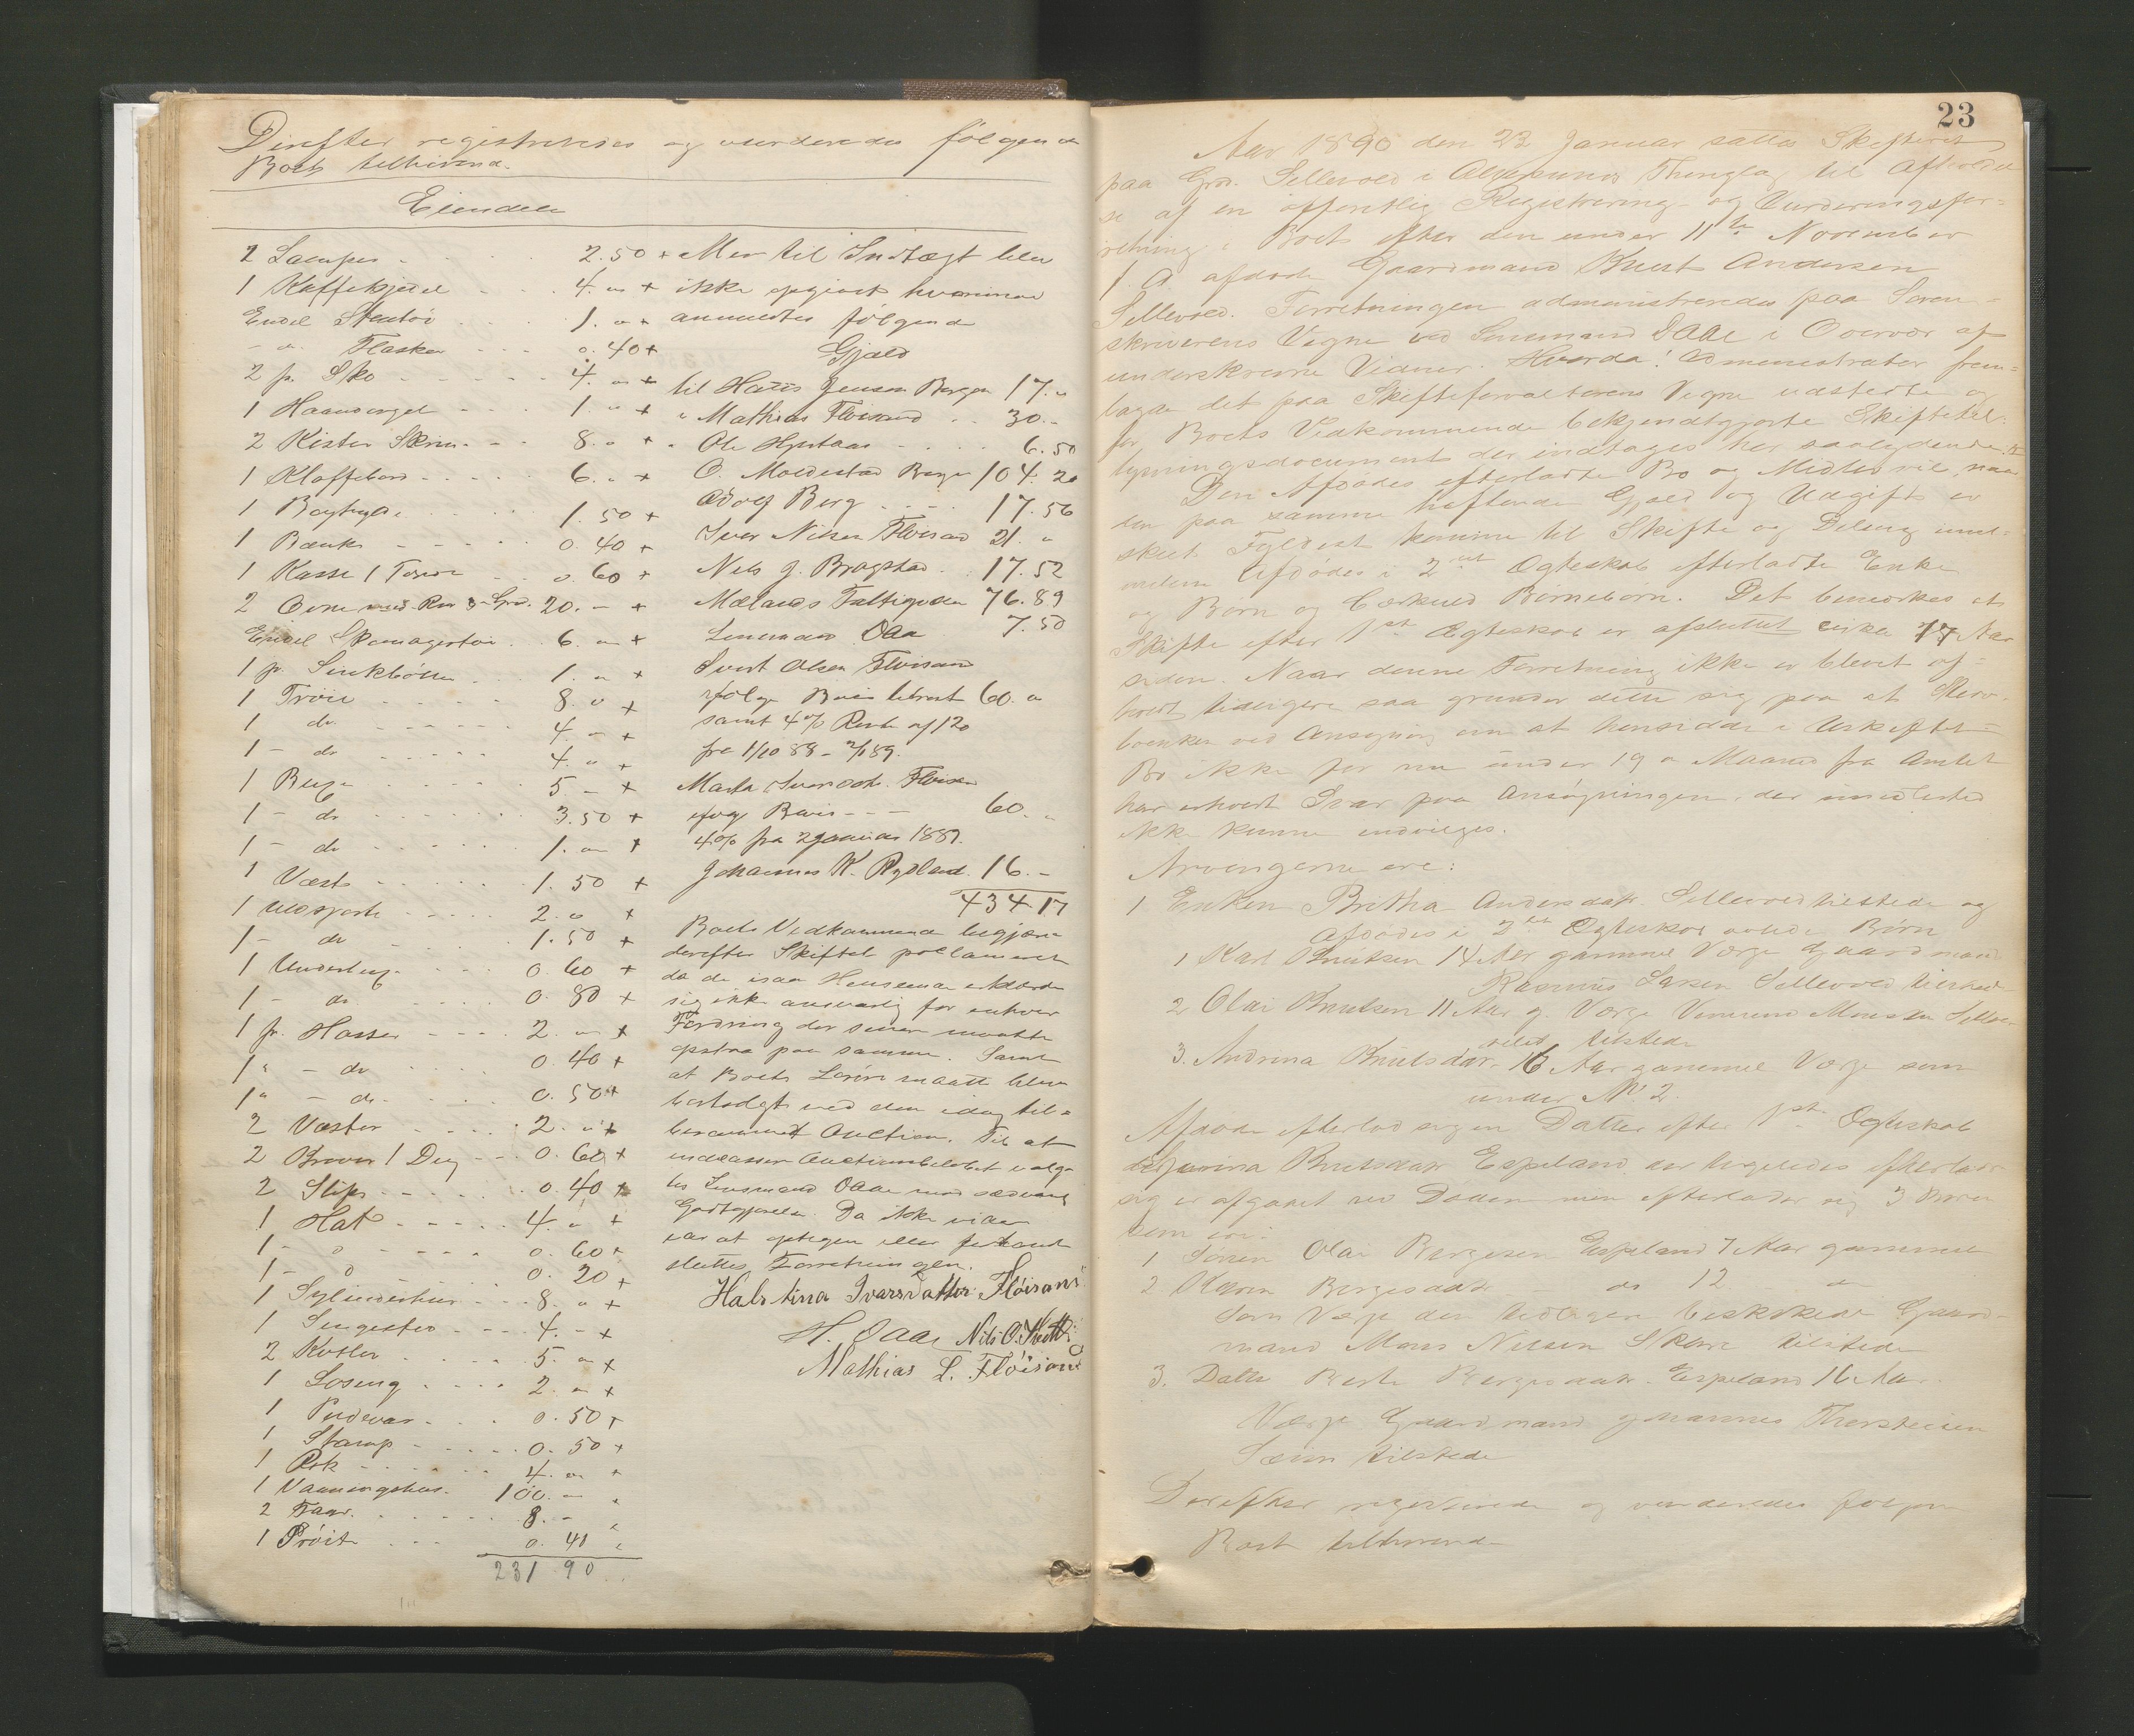 Derefter registreredes og vurderedes følgende
Boets tilhørend.
Eiendele
2 Lamper 2.50 +
1 Kaffekjedel 4. " +
Endel Stentøi 1. " +
- " - Flasker 0.40 +
2 p. Sko 4. " +
1 Haandorgel 1. " +
2 Kister Skrin 8. " +
1 Klaffebord 6. " +
1 1.50 +
1 Bænk 0.40 +
1 Kasse 1 0.60 +
2 Ovne med Rør 20. - +
Endel Skomagertøi 6. " +
1 p. 1. " +
1 Trøie 8. " +
1 do 4. - +
1 - do 4. " +
1 Buxe 5 - +
1 - do 3.50 +
1 - do 1. " +
1 Vest 1.50 +
1 Uldskjorte 2. " +
1 - do 1.50 +
1 Underbuxe 0.60 +
1 - do 0.80 +
1 p. Hoser 2. " +
1 " - do 0.40 +
1 " - do 0.50 +
2 Vaatter 2. " +
2 1 0.60 +
2 Slips 0.40 +
1 Hat 4. " +
1 - " 0.60 +
1 - " 0.20 +
1 Sylinderuhr 8. " +
1 Sengested 4. - +
2 5. " +
1 2. " +
1 Pudevar 0.50 +
1 Stamp 0.50 +
1 Rok 4. " +
1 Vaaningshus 100. -
2 Faar 8. -
1 0.40
231 90
Mer til Indtægt blev
ikke opgivet hvorimod
anmeldtes følgende
Gjæld
til Hans Jensen Bergen 17. "
" Mathias Fløisand 30. -
" Ole 6.50
O. Moldestad Bergen 104.20
Adolf Berg 17.56
Iver Nilsen Fløisand 21. "
Nils J. Bragstad 17.52
Mælands Fattigvæsen 76.89
Lensmand Daae 7.50
Sivert Olsen Fløisand
ifølge Bevis 60. "
samt 4% Rente af 120
fra 1/10 88 - 2/1 89.
Marta Iversdatr Fløisand
ifølge Bevis - - 60. "
4% fra 2 Januar 1889.
Johannes K. Rydland 16. -
434.17
Boets Vedkommende begjærte
derefter Skiftet proclameret
da de isaa Henseende erklærede
sig ikke ansvarlig for enhver
Fordring der senere maatte
opstaa paa samme. Samt
at Boets Løsøre maatte blive
bortsolgt ved den idag til-
berammet Auction. Til at
indcassere Auctionsbeløbet valg-
tes Lensmand Daae mod sædvanlig
Godtgjørelse. Da ikke videre
var at optegne eller forhandle
sluttes Forretningen.
Halstina Ivarsdatter Fløisand
H. Daae Nils O.
Mathias L. Fløisand
23
Aar 1890 den 22 Januar sattes Skifteret
paa Grd. Sellevold i Thinglag til Afholdel-
se af en offentlig Registrering- og Vurderingsfor-
retning i Boet efter den under 11te November
f. A. afdøde Gaardmand Knut Andersen
Sellevold. Forretningen administreredes paa Soren-
skriverens Vegne ved Lensmand Daae i Overvær af
underskrevne Vidner. Hvorda! Administrator frem-
lagde det paa Skifteforvalterens Vegne udstedte og
for Boets Vedkommende bekjendtgjorte Skiftetil-
lysningsdocument der indtages her saalydende:
Den Afdødes efterladte Bo og Midler vil, naar
den paa samme heftende Gjæld og Udgifter er
skeet Fyldest komme til Skifte og Deling imel-
lem Afdødes i 2det Ægteskab efterladte Enke
og Børn og Børnebørn. Det bemærkes at
Skifte efter 1ste Ægteskab er afsluttet cirka 17 Aar
siden. Naar denne Forretning ikke er blevet af-
holdt tidligere saa grunder dette sig paa at Sterv-
boenken ved Ansøgning om at hensidde i Uskiftet
Bo ikke før nu under 19 " Maaned fra Amtet
har erholdt Svar paa Ansøgningen, der imidlertid
ikke kunne indvilges.
Arvingerne ere:
1 Enken Britha Andersdatr. Sellevold tilstede og
Afdødes i 2det Ægteskab avlede Børn
1 Karl Knutsen 14 Aar gammel Værge Gaardmand
Rasmus Larsen Sellevold tilstede
2 Olai Knutsen 11 Aar g. Værge Monsen Selle-
vold tilstede
3. Andrina Knutsdatr. 16 Aar gammel Værge som
under No 2.
Afdøde efterlod sig en Datter efter 1ste Ægteskab
Knutsdatr Espeland der ligeledes
sig er afgaaet ved Døden men efterlader sig 3 Børn
som ere:
1 Sønnen Olai Børgesen Espeland 7 Aar gammel
2 Karen Børgesdatr do 12 do
Som Værge den tidligere beskikkede Gaard-
mand Mons Nilsen Skare tilstede
3. Datter Berte Børgesdatr. Espeland 16 Aar.
Værge Gaardmand Johannes Thorsteinsen
Sæim tilstede
Derefter registreredes og vurderedes følgende
Boet tilhørende